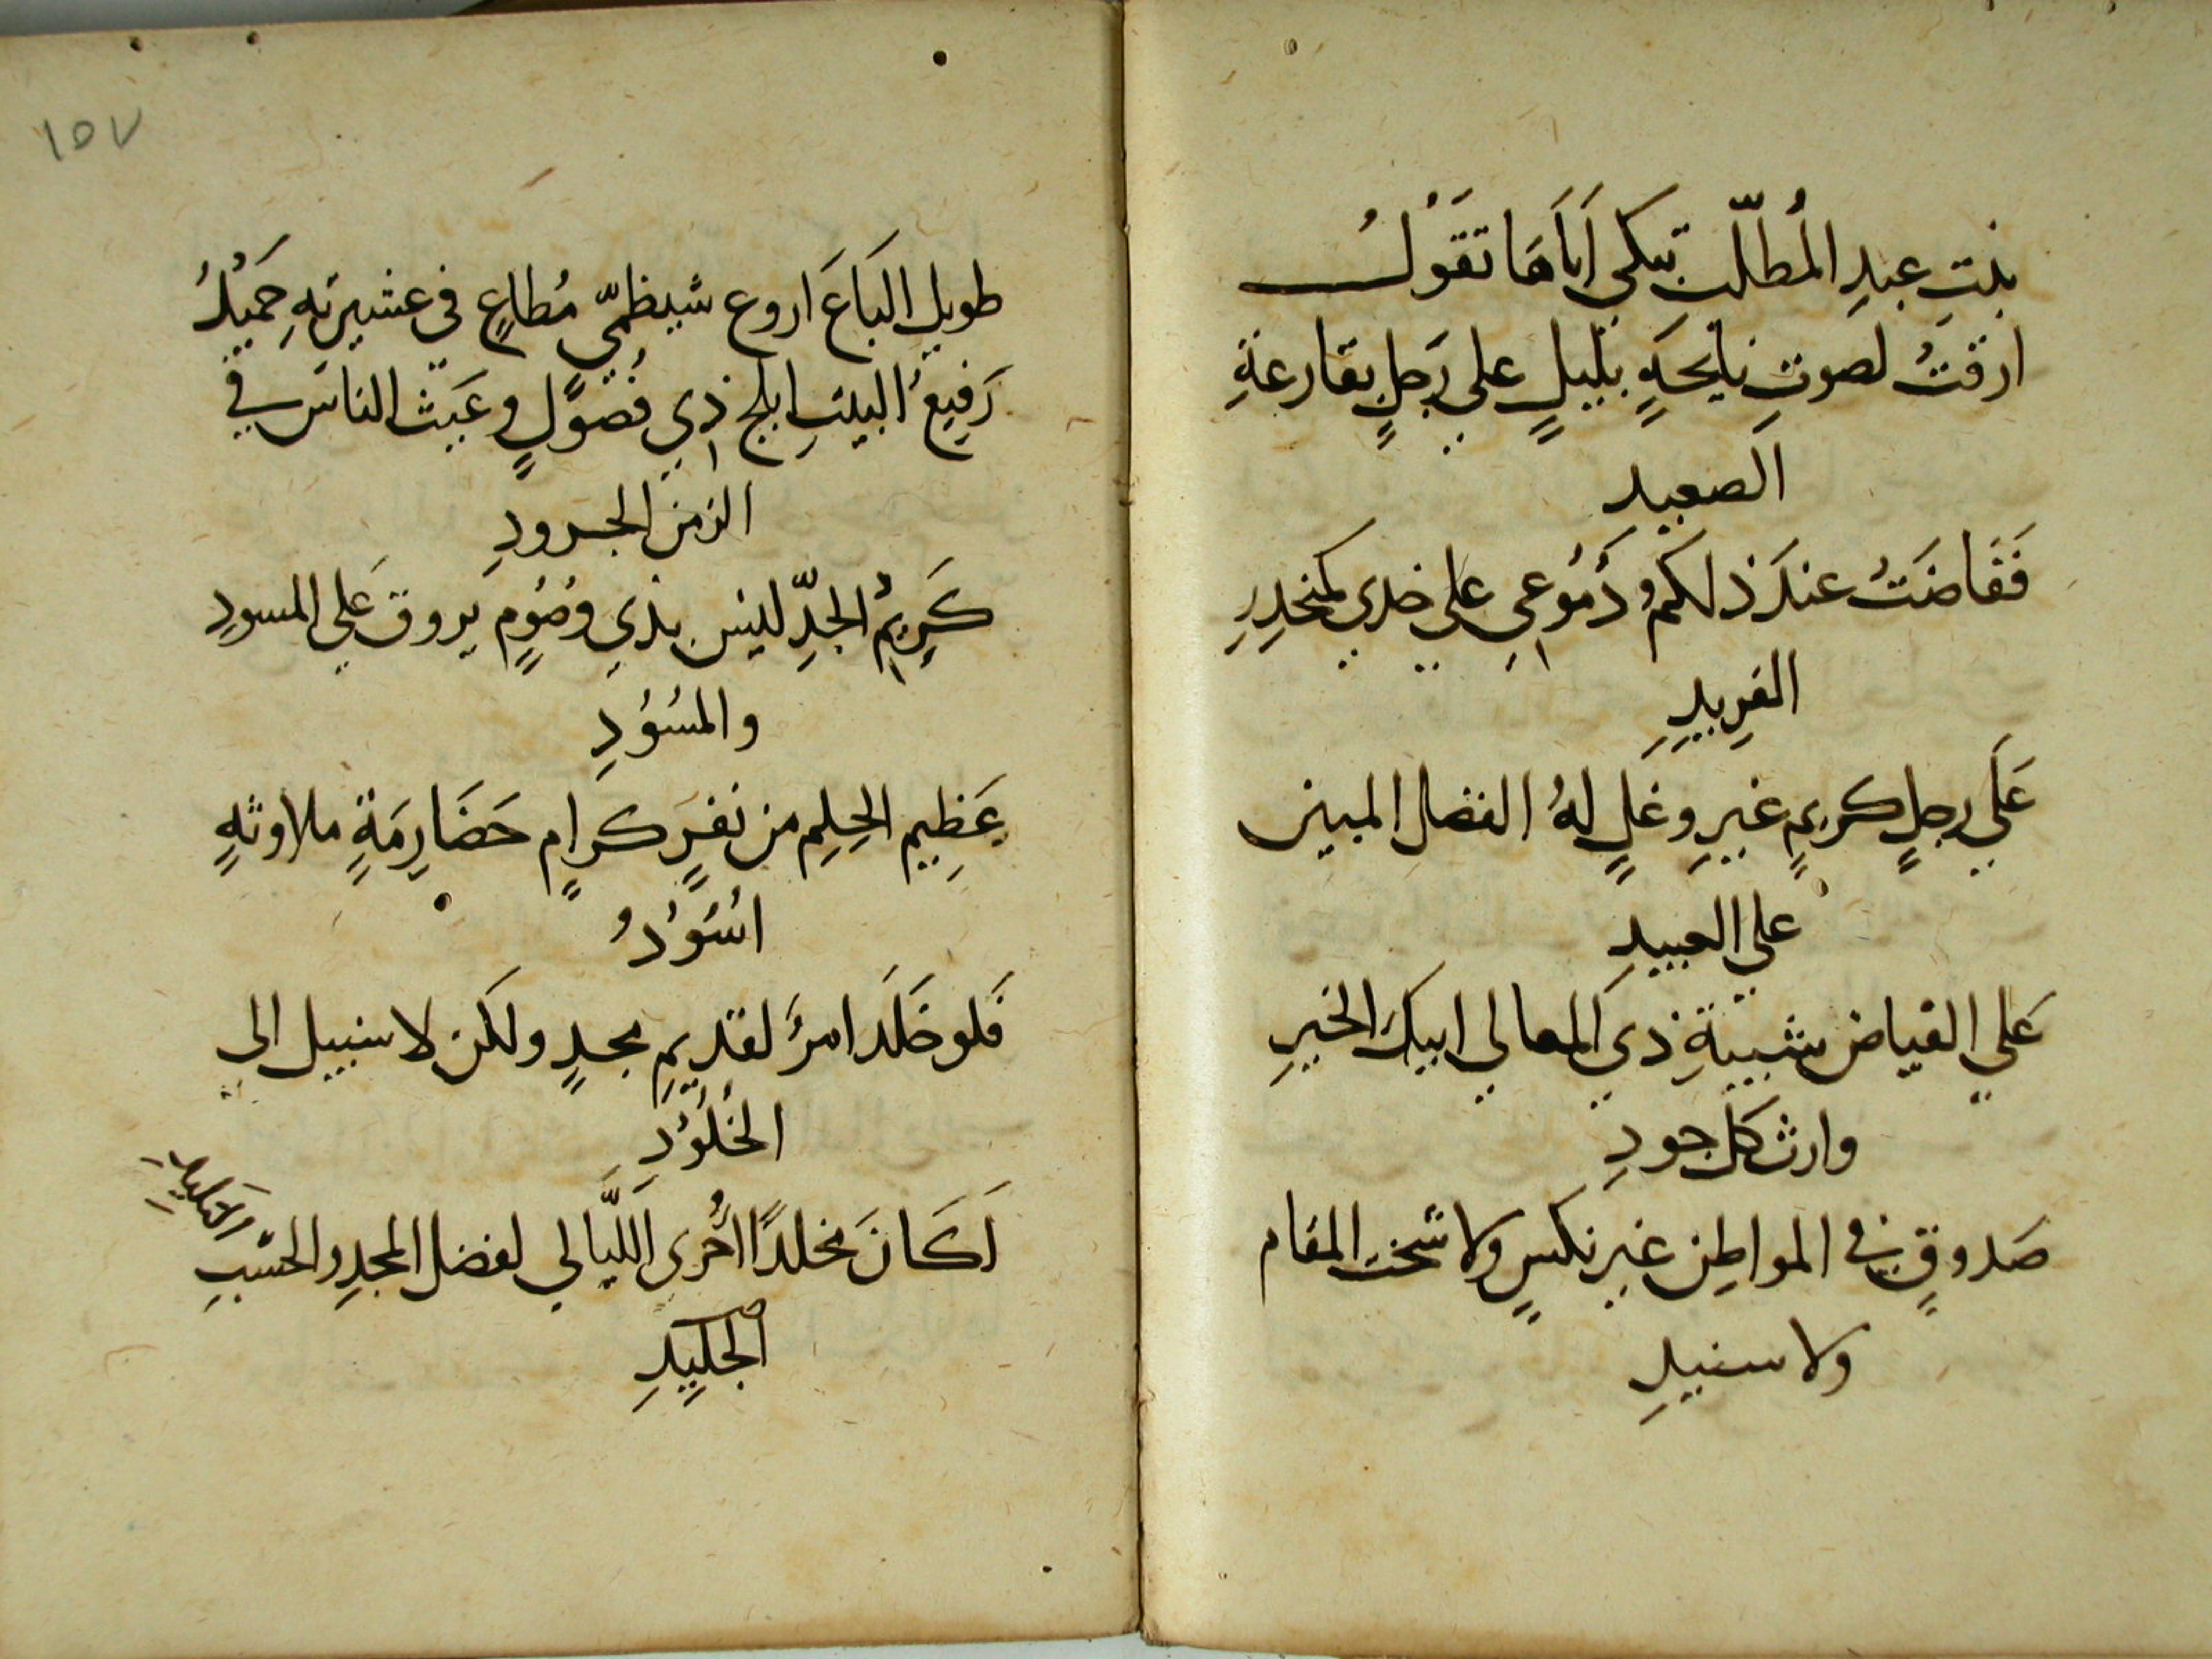 بنتِ عبدِ المُطلّب تبكي اَباَهَا تقَوُلُ
ارقتُ لصوتِ نايحةٍ بليلٍ علي رَجلٍ بقارعةِ
الصعيدِ
فَفَاضَتُ عندَ ذلكم دُمُوعِي علي خدي كمنحدِرِ
الفرِيدِ
عَلَي رجلٍ كريمٍ غيرِ وغلٍ لهُ الفضل المبين
علي العبيدِ
عَلي الفياض شيبةِ ذي المعالي ابيكَ الخيرِ
وارث كل جودِ
صَدوقٍ في المواطِن غيرِ نكسٍ ولا شخت المقام
ولا سنيدِ
١٥٧
طويل البَاعَ اروع شيظميّ مُطاعٍ في عشيرتهِ حَميْدُ
رَفِيعُ البيتِ ابلج ذِي فُضوْلٍ وغَيث الناسَ في
الزمن الجرودِ
كَرِيْمُ الجدِّ ليس بذي وصُومٍ يروق عَلي المسودِ
والمسُوُدِ
عَظِيم الحِلِم من نفرٍ كرامٍ حَضَارِمَةٍ ملاوثهٍ
اسُوُدُ
فَلو خَلَد امرؤ لقديمِ مجدٍ ولكن لا سبيل الى
الخُلُوْدِ
لَكَانَ مخلدًا اُخرى اللَّيالي لفضل المجدِ والحسبِ
الجَلِيدِ